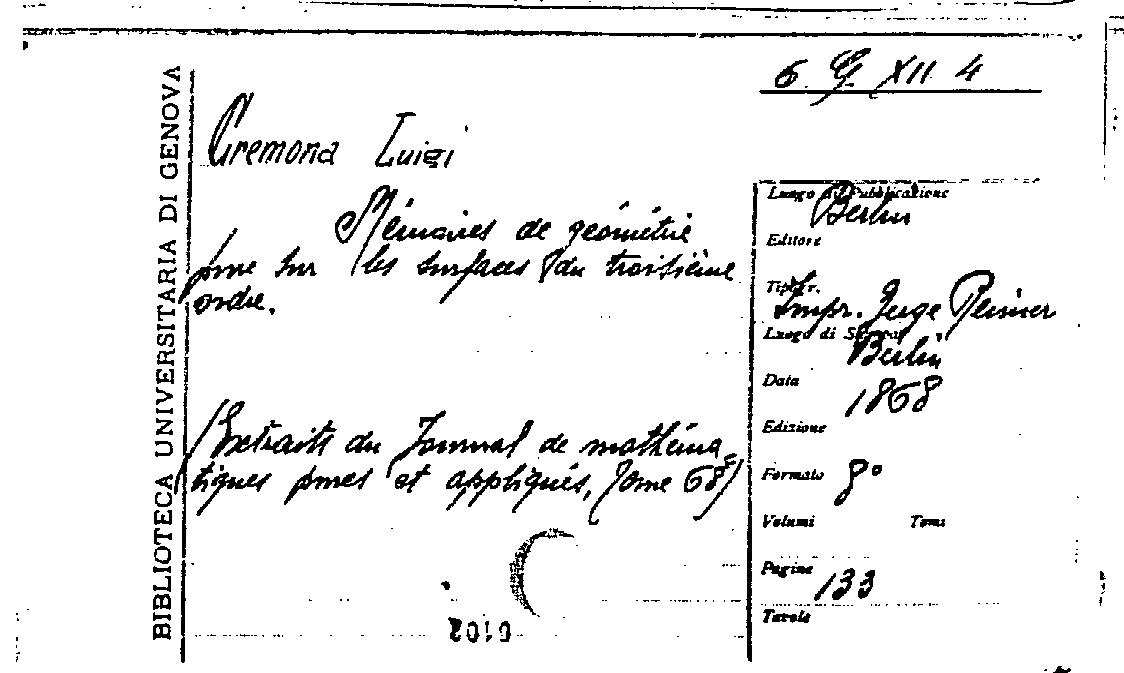 BIBLIOTECA UNIVERSITARIA DI GENOVA
6 G. XII 4
Cremona Luigi
Mémoires de géométrie
pure sur les surfaces du troisième
ordre.
(Extraits du Journal de mathéma-
tiques pures et appliqués, Tome 68)
Luogo di Pubblicazione
Berlin
Editore
Tipogr.
Impr. Reimer
Luogo di Stampa
Berlin
Data
1868
Edizione
Formato 8°
Volumi Tomi
Pagine 133
Tavole